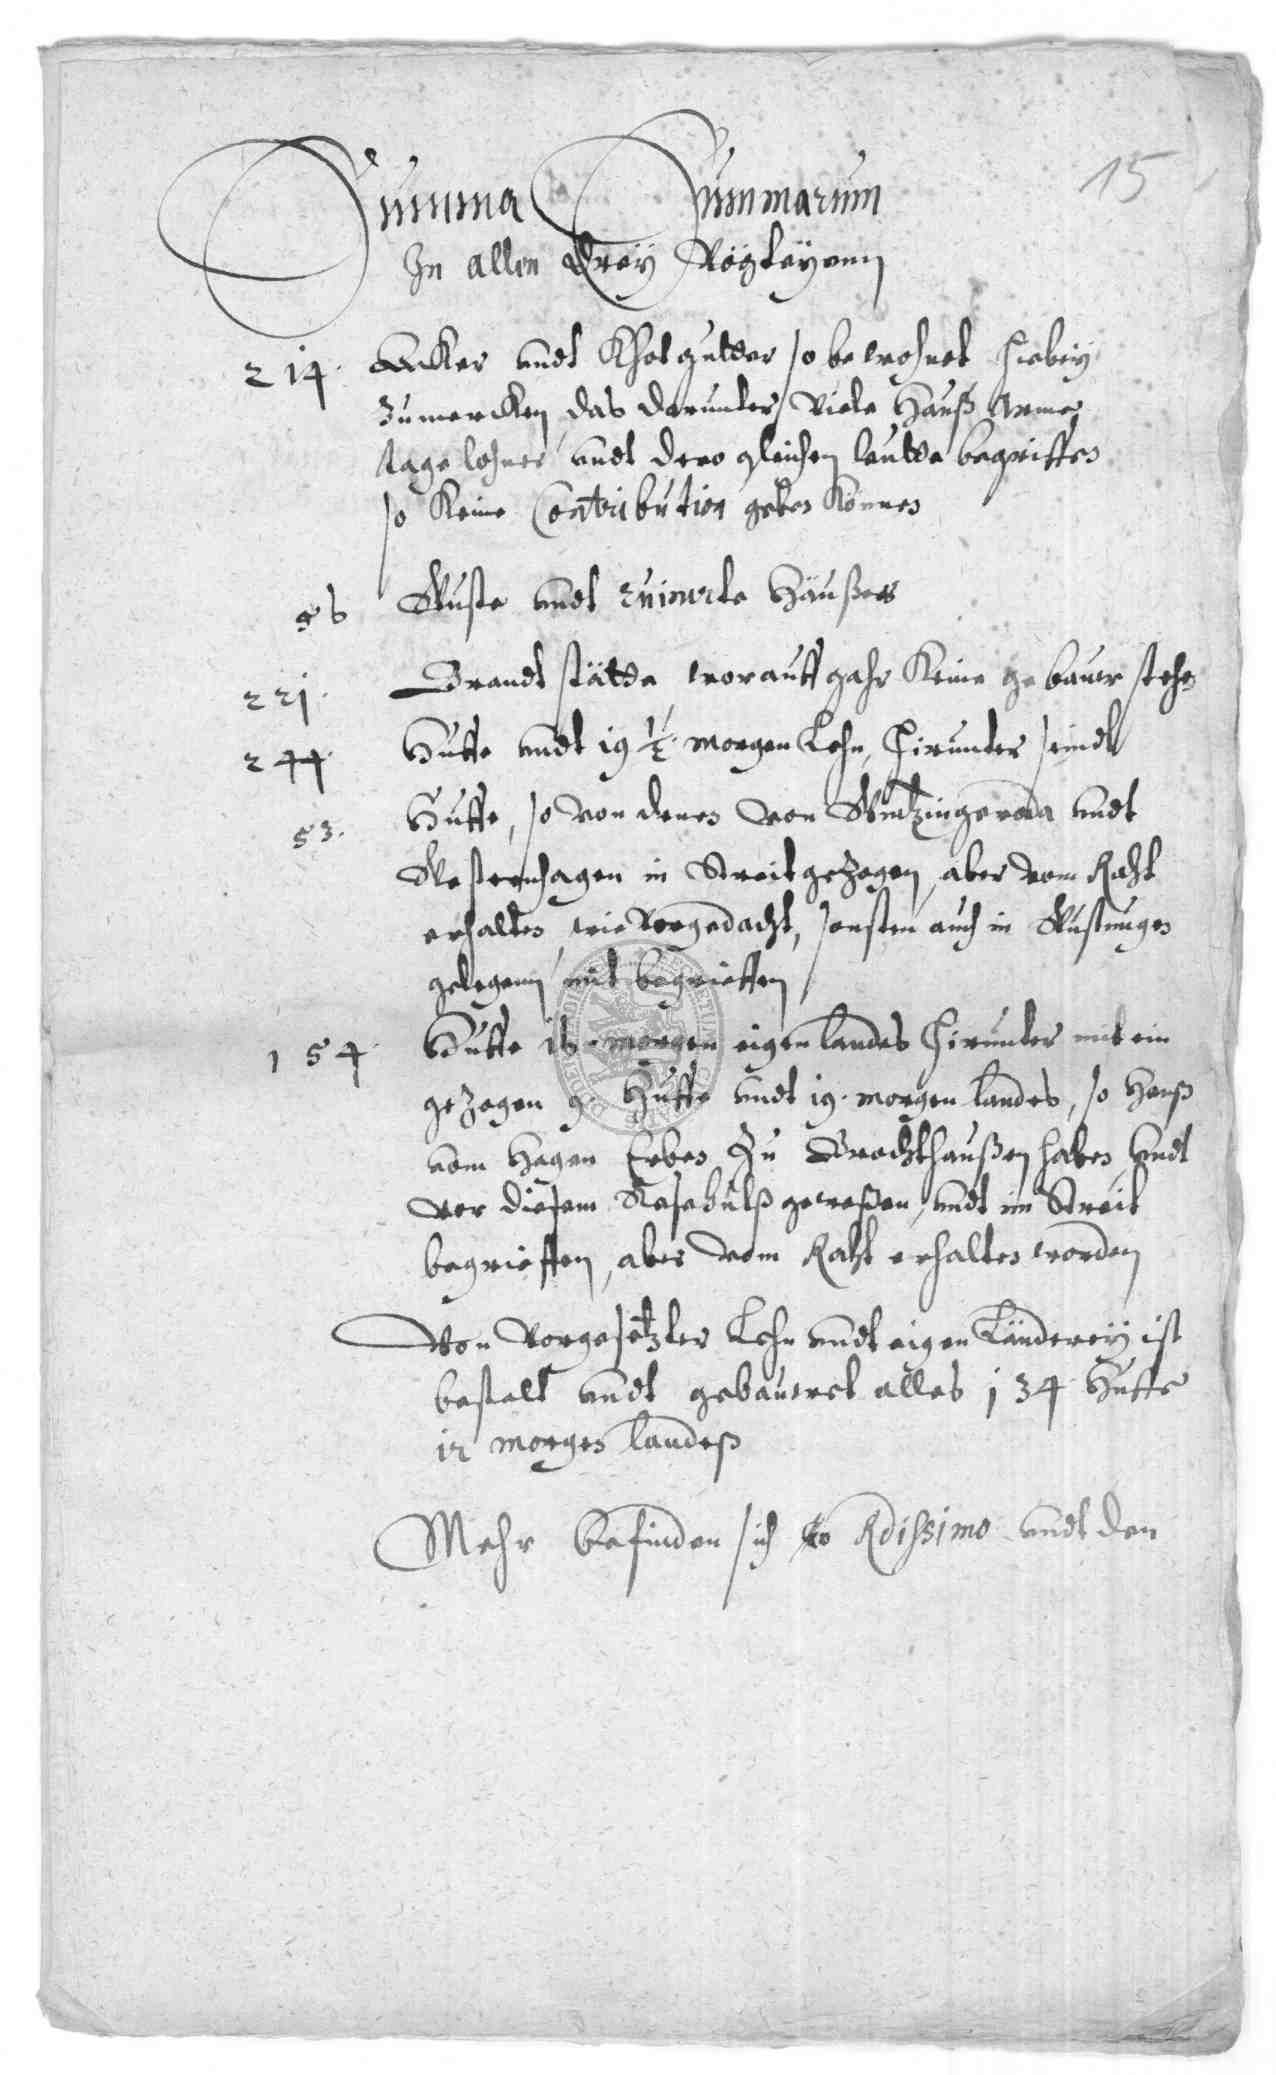 15
Summa Summarum
In allen Dreÿ Vögteÿenn
214. Acker undt Khotgutder so bewohnet hiebeÿ
zumercken, das darunter viele Hauß Arme
tagelohner undt dero gleichen leutde begriffen
so Keine Contribution geben Können
56 Wuste undt ruinirte Häußer
221. Brandt stätde worauff gahr Keine gebauw stehen
244. Huffe undt 19 1/2. morgen Lehn, hirunter seindt
53. Huffe, so von denen von Wintzingeroda undt
Westernhagen in Streit gezogen, aber vom Raht
erhalten, wie vorgedacht, sonsten auch in Wustungen
gelegenn mit begrieffen
154. Huffe 16. morgen eigen landes hirunter mit ein
gezogen 9. Huffe undt 19. morgen landes, so Hanß
vom Hagen Erben zu Brochthaußen haben undt
vor diesem geweßen, undt im Streit
begrieffen, aber vom Raht erhalten worden
Von vorgesetzter Lehn undt eigen Länderey ist
bestelt undt gebauwet alles 134 Huffe
12 morgen landeß
Mehr befinden sich Rdissimo undt den